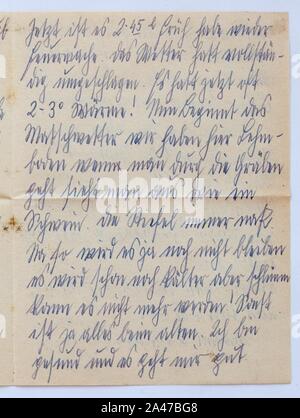 Jetzt ist es 2.45 h früh habe wieder
Feuerwache. Das Wetter hatt vollstän-
dig umgeschlagen. Es hatt jetzt oft
2-3° Wärme! Nun beginnt das
Matschwetter wir haben hier Lehm-
boden wenn man durch die Gräben
geht sieht man aus wie ein
Schwein. die Stiefel immer naß.
Na so wird es ja noch nicht bleiben
es wird schon noch kälter aber schlimm
kann es nicht mehr werden! Sonst
ist ja alles beim alten. Ich bin
gesund und es geht mir gut
alamy
Image ID: 2A47BG8
www.alamy.com